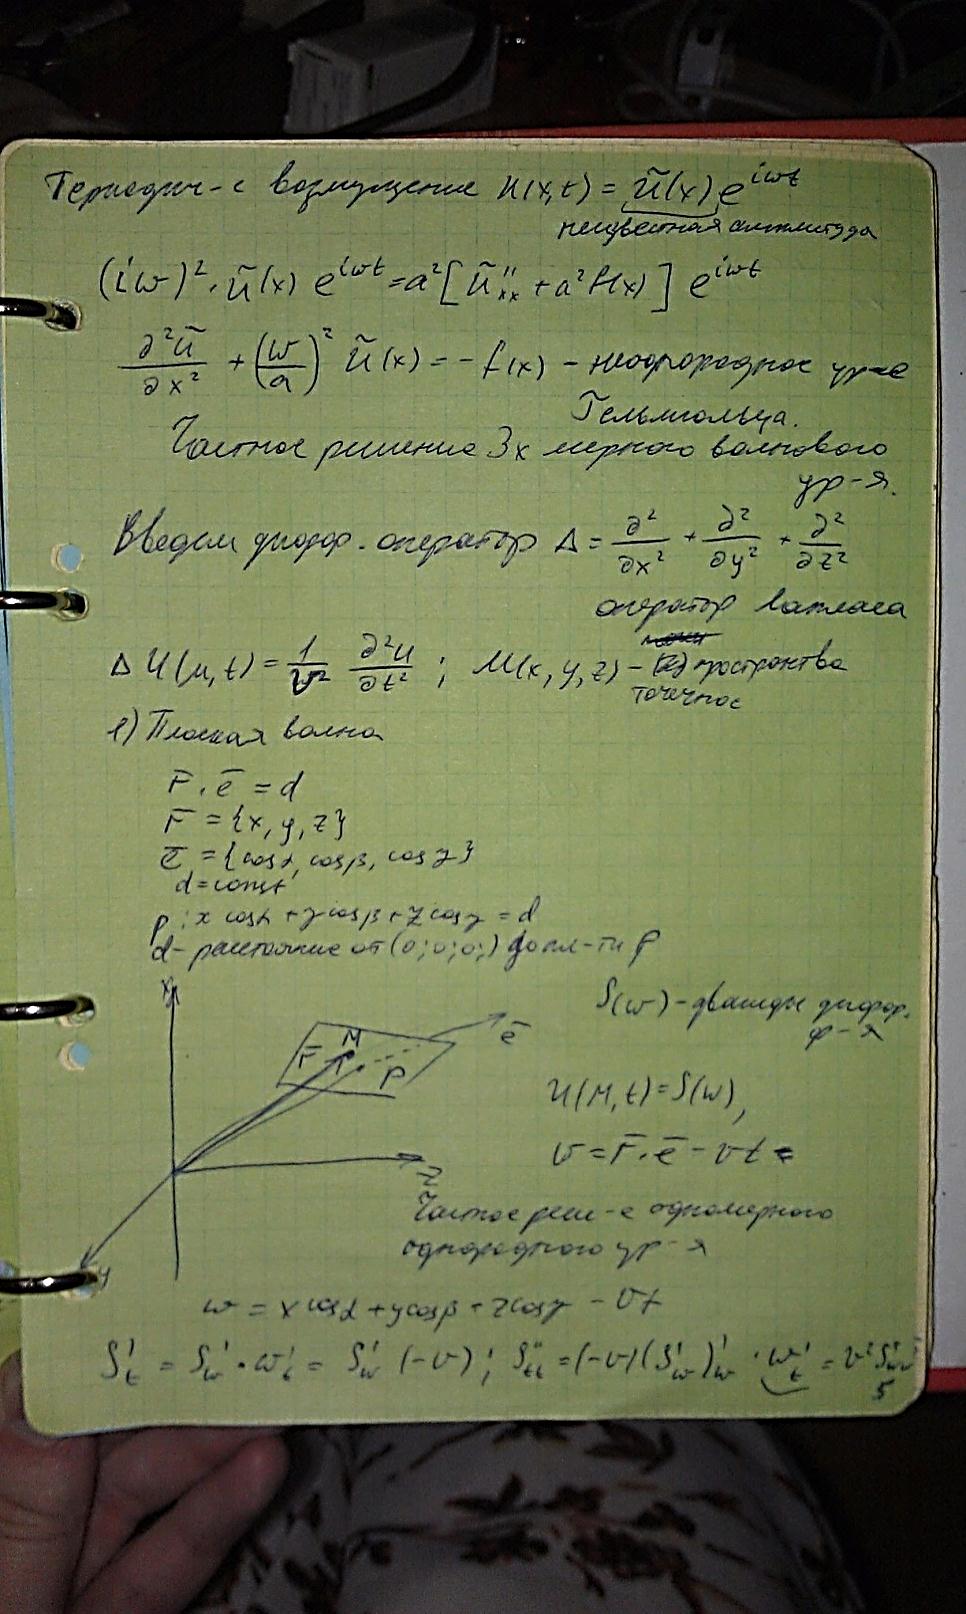 Периодич-е возмущение u(x,t) = ũ(x) e^{iωt}
неизвестная амплитуда
(iω)² · ũ(x) e^{iωt} = a² [ũ''ₓₓ + a² f(x)] e^{iωt}
∂²ũ/∂x² + (ω/a)² ũ(x) = - f(x) - неоднородное ур-е
Гельмгольца.
Частное решение 3х мерного волнового
ур-я.
Введем дифф. оператор Δ = ∂²/∂x² + ∂²/∂y² + ∂²/∂z²
оператор Лапласа
Δ U(M,t) = 1/v² ∂²u/∂t² ; M(x, y, z) - пространства
точечное
1) Плоская волна
r̄ · ē = d
r̄ = {x, y, z}
ē = {cosα, cosβ, cosγ}
d = const
p : x cosα + y cosβ + z cosγ = d
d - расстояние от (0; 0; 0;) до пл-ти P
x
M
r̄
P
ē
z
y
S(w) - дважды дифф.
ф-я
u(M, t) = S(w),
v = r̄ · ē - vt
Частное реш-е одномерного
однородного ур-я
w = x cosα + y cosβ + z cosγ - vt
S'ₜ = S'_w · w'ₜ = S'_w (-v) ; S''ₜₜ = (-v)(S'_w)'_w · w'ₜ = v² S''_ww
5